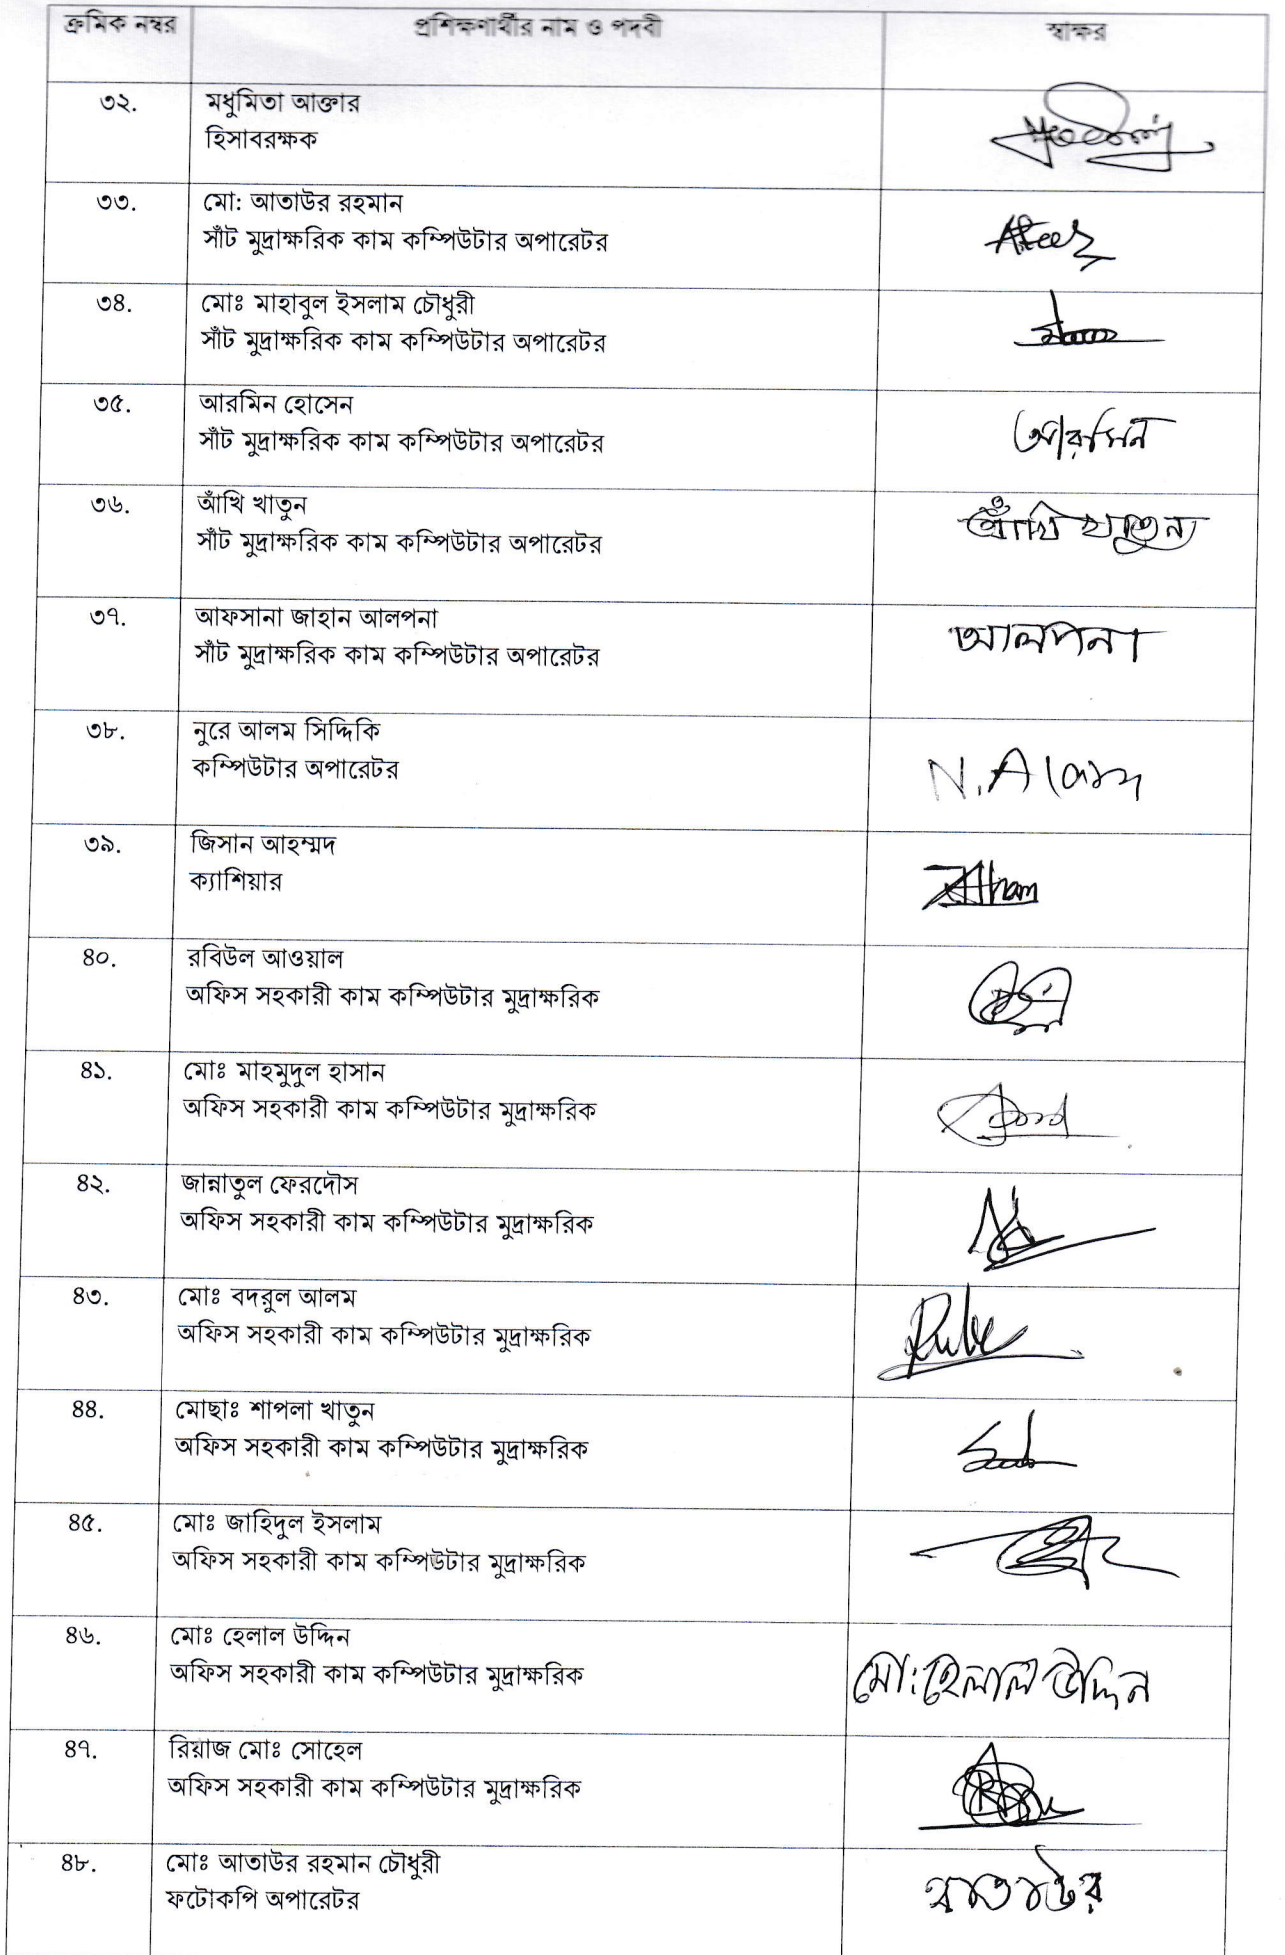 ক্রমিক নম্বর প্রশিক্ষণার্থীর নাম ও পদবী স্বাক্ষর
৩২. মধুমিতা আক্তার
হিসাবরক্ষক
৩৩. মো: আতাউর রহমান
সাঁট মুদ্রাক্ষরিক কাম কম্পিউটার অপারেটর
৩৪. মোঃ মাহাবুল ইসলাম চৌধুরী
সাঁট মুদ্রাক্ষরিক কাম কম্পিউটার অপারেটর
৩৫. আরমিন হোসেন
সাঁট মুদ্রাক্ষরিক কাম কম্পিউটার অপারেটর আরমিন
৩৬. আঁখি খাতুন
সাঁট মুদ্রাক্ষরিক কাম কম্পিউটার অপারেটর আঁখি খাতুন
৩৭. আফসানা জাহান আলপনা
সাঁট মুদ্রাক্ষরিক কাম কম্পিউটার অপারেটর আলপনা
৩৮. নুরে আলম সিদ্দিকি
কম্পিউটার অপারেটর N. Alam
৩৯. জিসান আহম্মদ
ক্যাশিয়ার
৪০. রবিউল আওয়াল
অফিস সহকারী কাম কম্পিউটার মুদ্রাক্ষরিক
৪১. মোঃ মাহমুদুল হাসান
অফিস সহকারী কাম কম্পিউটার মুদ্রাক্ষরিক
৪২. জান্নাতুল ফেরদৌস
অফিস সহকারী কাম কম্পিউটার মুদ্রাক্ষরিক
৪৩. মোঃ বদরুল আলম
অফিস সহকারী কাম কম্পিউটার মুদ্রাক্ষরিক
৪৪. মোছাঃ শাপলা খাতুন
অফিস সহকারী কাম কম্পিউটার মুদ্রাক্ষরিক
৪৫. মোঃ জাহিদুল ইসলাম
অফিস সহকারী কাম কম্পিউটার মুদ্রাক্ষরিক
৪৬. মোঃ হেলাল উদ্দিন
অফিস সহকারী কাম কম্পিউটার মুদ্রাক্ষরিক মো: হেলাল উদ্দিন
৪৭. রিয়াজ মোঃ সোহেল
অফিস সহকারী কাম কম্পিউটার মুদ্রাক্ষরিক
৪৮. মোঃ আতাউর রহমান চৌধুরী
ফটোকপি অপারেটর আতাউর